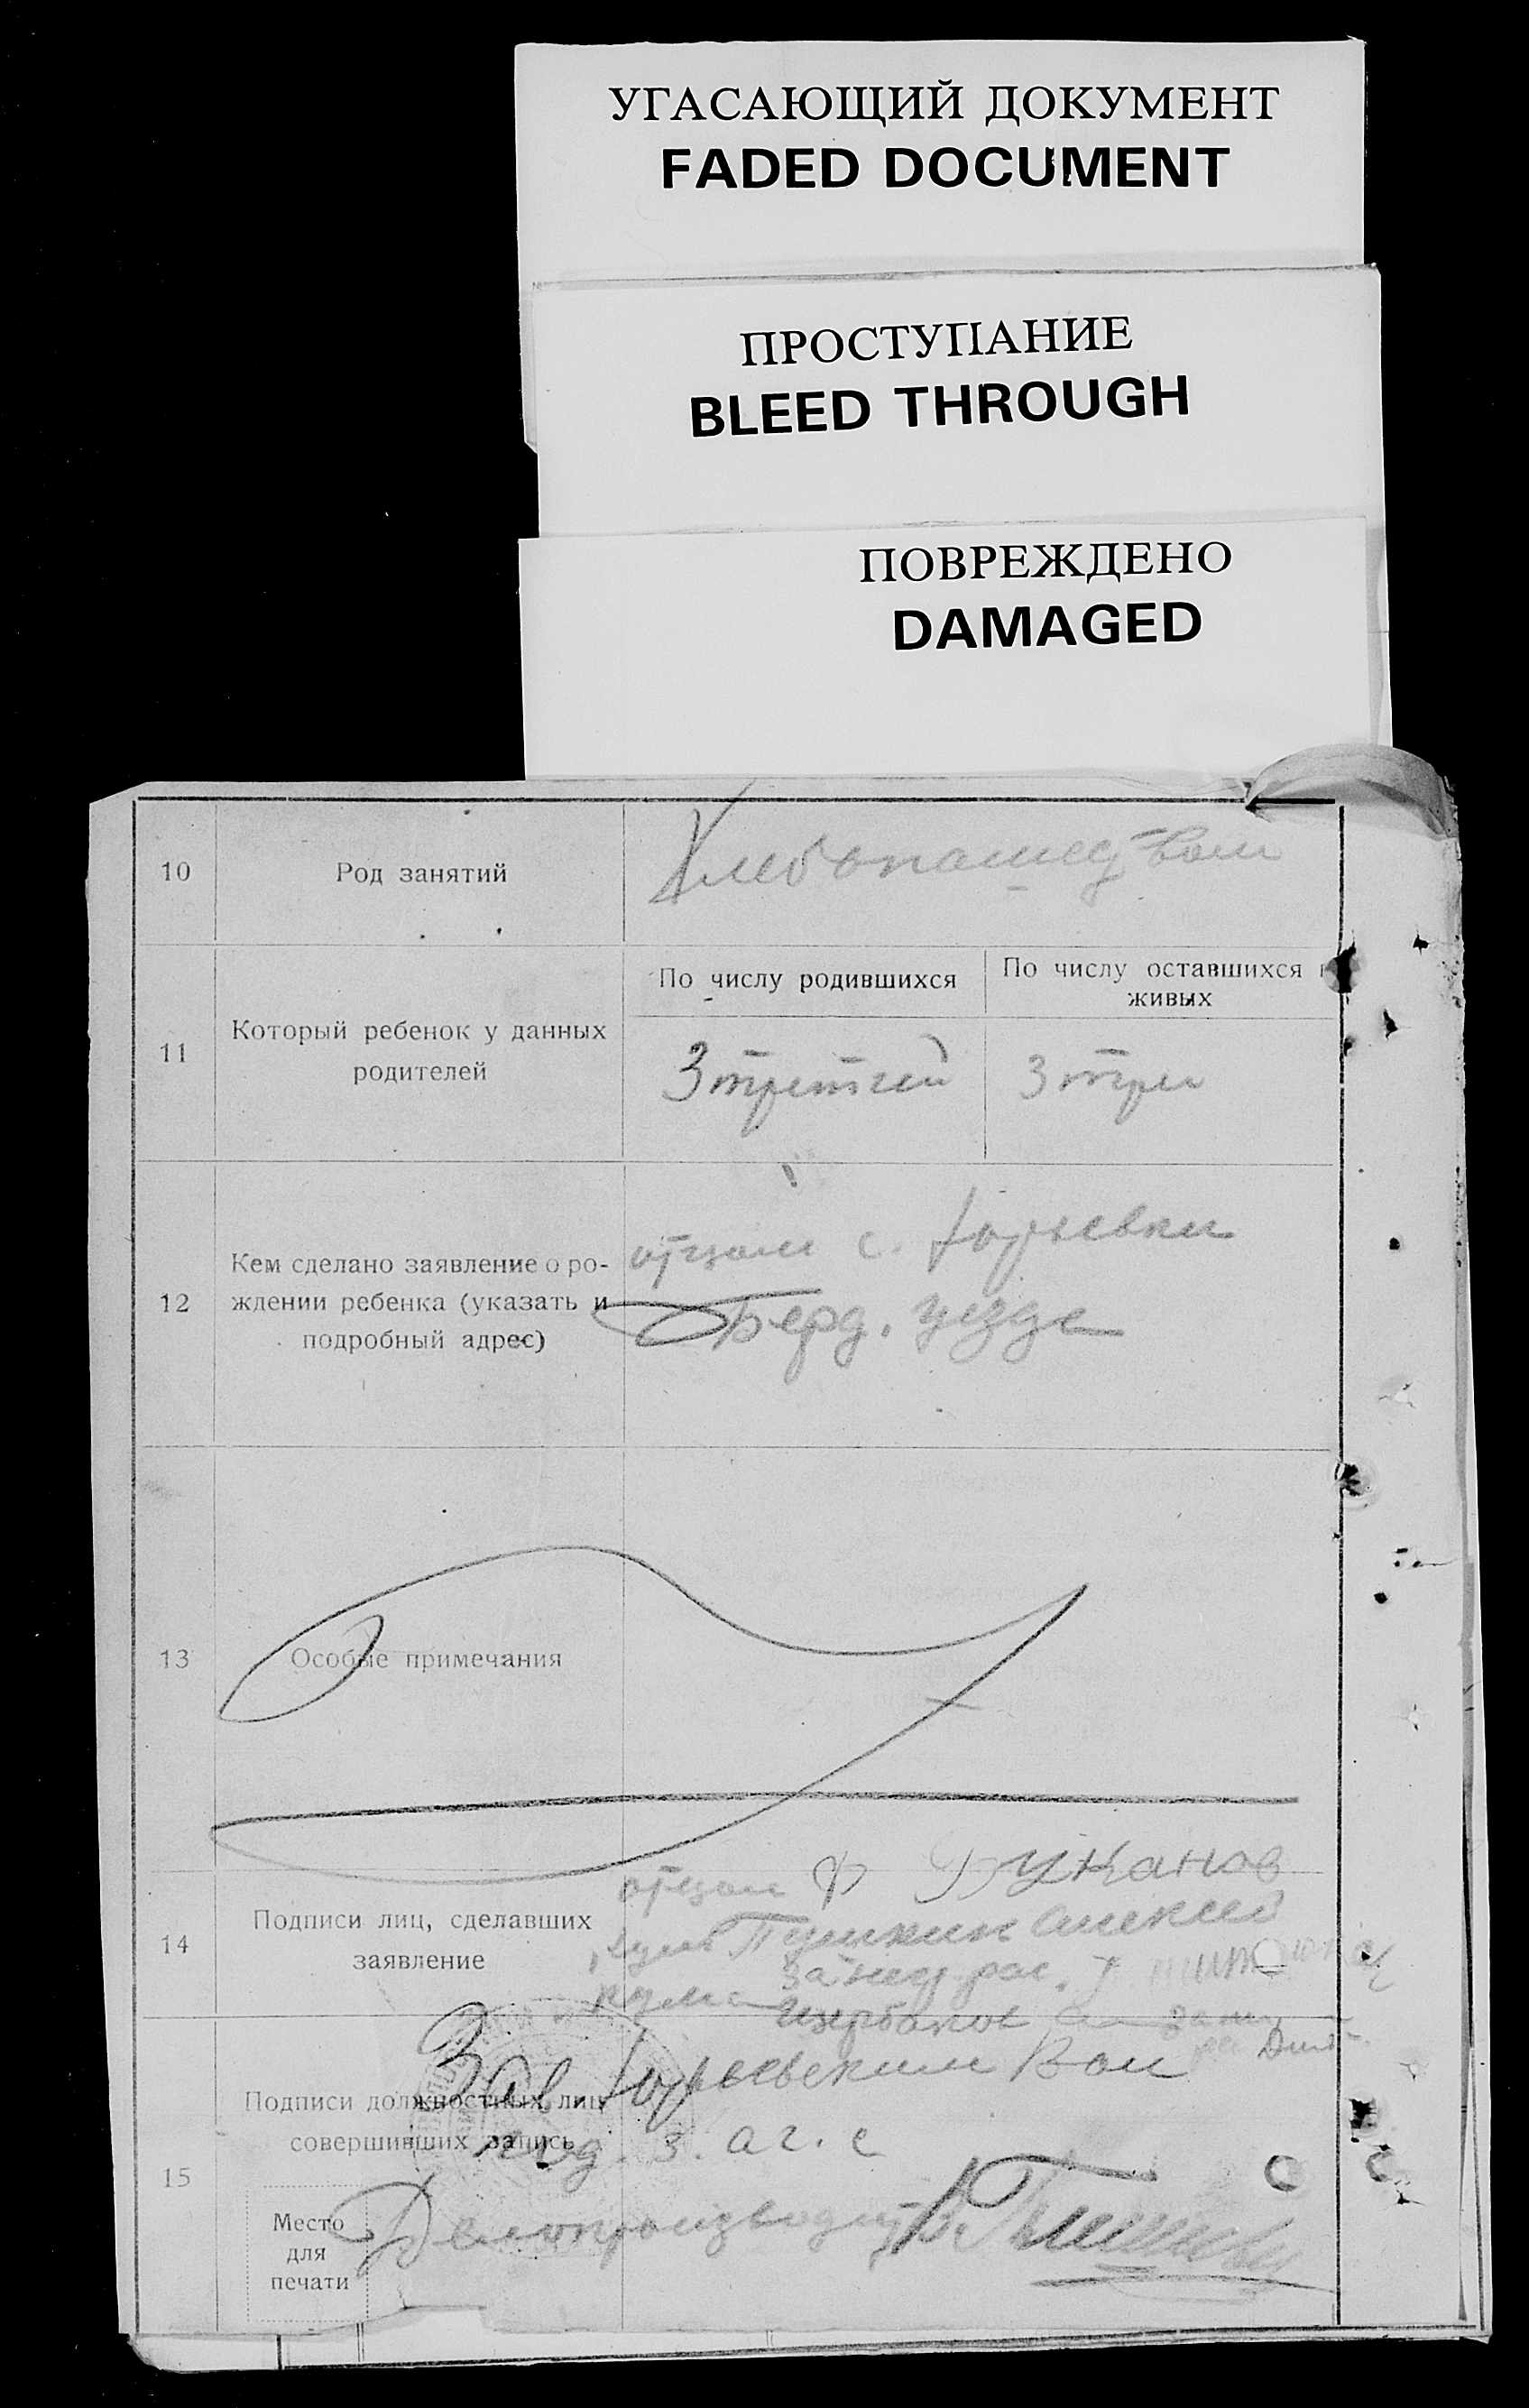 УГАСАЮЩИЙ ДОКУМЕНТ
FADED DOCUMENT
ПРОСТУПАНИЕ
BLEED THROUGH
ПОВРЕЖДЕНО
DAMAGED
10
Род занятий
Хлебопашеством
11
Который ребенок у данных
родителей
По числу родившихся
По числу оставшихся
живых
3 третий
3 три
12
Кем сделано заявление о ро-
ждении ребенка (указать и
подробный адрес)
отцом с. Юрьевки
Берд. уезде
13
Особые примечания
14
Подписи лиц, сделавших
заявление
отцом Ф
Пушкин Алексей
Щербаков
15
Подписи должностных лиц
совершивших запись
Зав. Юрьевским Вол
под. з. а г. с
Место
для
печати
Делопроизвод